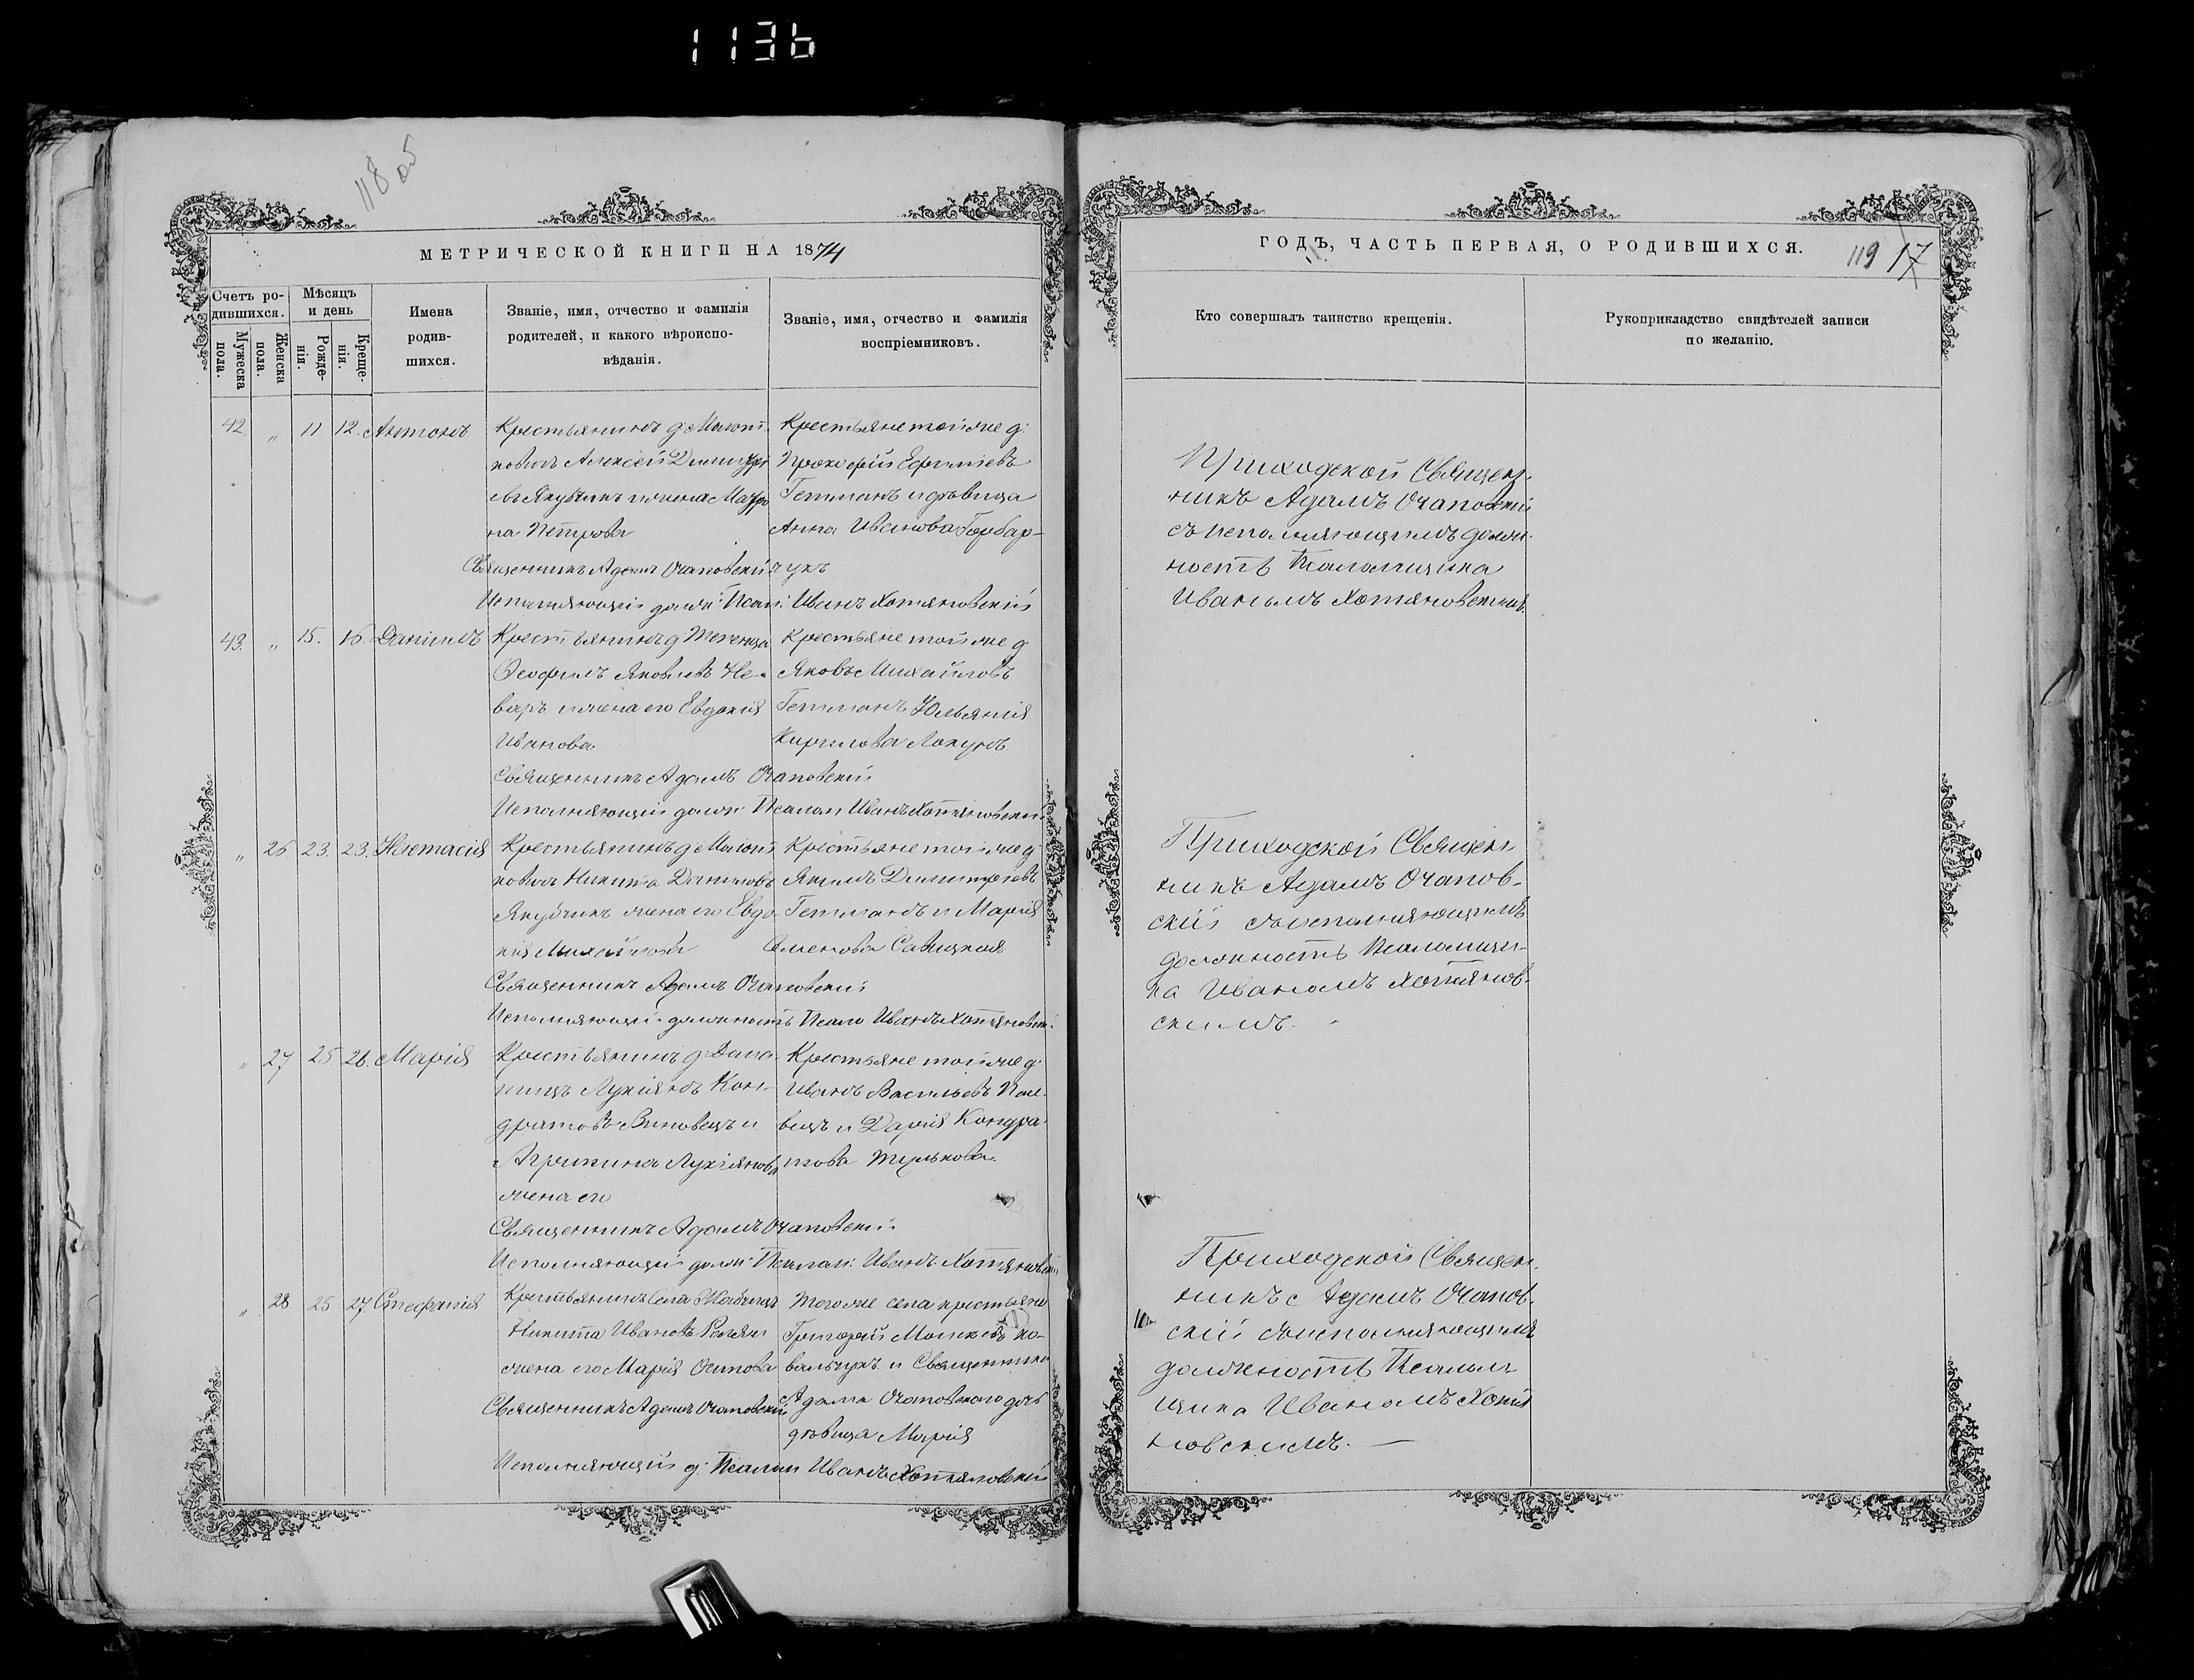 1136
118 об
МЕТРИЧЕСКОЙ КНИГИ НА 1874
Счетъ ро-
дившихся.
Мужеска
пола.
Женска
пола.
Мѣсяцъ
и день
Рожде-
нія.
Креще-
нія.
Имена
родив-
шихся.
Званіе, имя, отчество и фамилія
родителей, и какого вѣроиспо-
вѣданія.
Званіе, имя, отчество и фамилія
воспріемниковъ.
42. „ 11 12. Антонъ
Крестьянинъ д.
Алексей
Якубчикъ и жена
на Петрова
Крестьяне той же д.
Прокофій Ефимовъ
Гетманъ и дѣвица
Анна Иванова Горбар-
укъ
Священникъ Адамъ Очаповскій
Исполняющій долж: Псал: Иванъ Хотяновскій
43. „ 15. 16. Даніилъ
Крестьянинъ д.
Ѳеофилъ Яковлевъ Не-
варъ и жена его Евдокія
Иванова
Крестьяне той же д.
Яковъ Михайловъ
Гетманъ Юльянія
Кирилова
Священникъ Адамъ Очаповскій
Исполняющій долж: Псалом Иванъ Хотяновскій
„ 26 23. 23. Анастасія
Крестьянинъ д.
Никита Даниловъ
Якубчикъ жена его Евдо-
кія Михайлова
Крестьяне той же д.
Якимъ Димитріевъ
Гетманъ и Марія
Семенова Савицкая
Священникъ Адамъ Очаповскій
Исполняющій должность Псало Иванъ Хотяновск:
„ 27 25. 26. Марія
Крестьянинъ д.
Лукіянъ Кон-
дратовъ Виновецъ и
Агрипина Лукіянова
жена его
Крестьяне той же д.
Иванъ Васильевъ
и Дарія Кондра-
това
Священникъ Адамъ Очаповскій
Исполняющій долж: Псалом: Иванъ Хотяновскій
„ 28 25 27. Стефанія
Крестьянинъ Села Жабчицъ
Никита Ивановъ
жена его Марія Осипова
Того же села крестьяне
Григорій ко-
вальчукъ и Священника
Адама Очаповскаго дочь
дѣвица Марія
Священникъ Адамъ Очаповскій
Исполняющій д: Псалом Иванъ Хотяновскій
ГОДЪ, ЧАСТЬ ПЕРВАЯ, О РОДИВШИХСЯ.
119 17
Кто совершалъ таинство крещенія.
Рукоприкладство свидѣтелей записи
по желанію.
Приходской Священ-
никъ Адамъ Очаповскій
съ исполняющимъ долж-
ность Псаломщика
Иваномъ Хотяновскимъ
Приходской Священ
никъ Адамъ Очапов-
скій съ исполняющимъ
должность Псаломщи-
ка Иваномъ Хотянов-
скимъ.
Приходской Священ
никъ Адамъ Очапов-
скій съ исполняющимъ
должность Псалом
щика Иваномъ Хотя
новскимъ. —